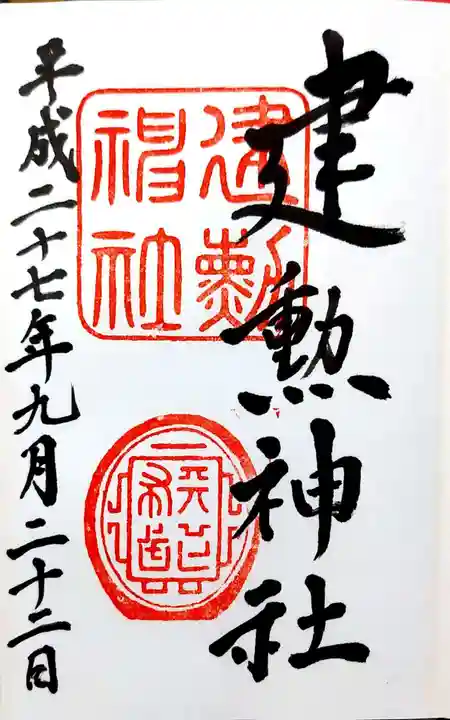 建勲神社
建勲
神社
平成二十七年九月二十二日